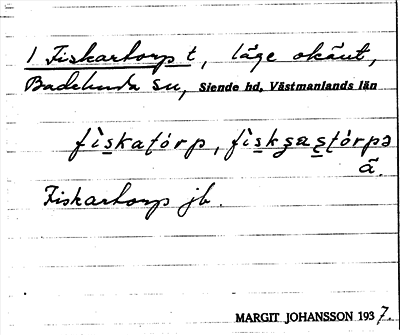 1 Fiskartorp t, läge okänt,
Badelunda sn, Siende hd, Västmanlands län
fiskatórp,
ä.
Fiskartorp jb.
MARGIT JOHANSSON 1937.